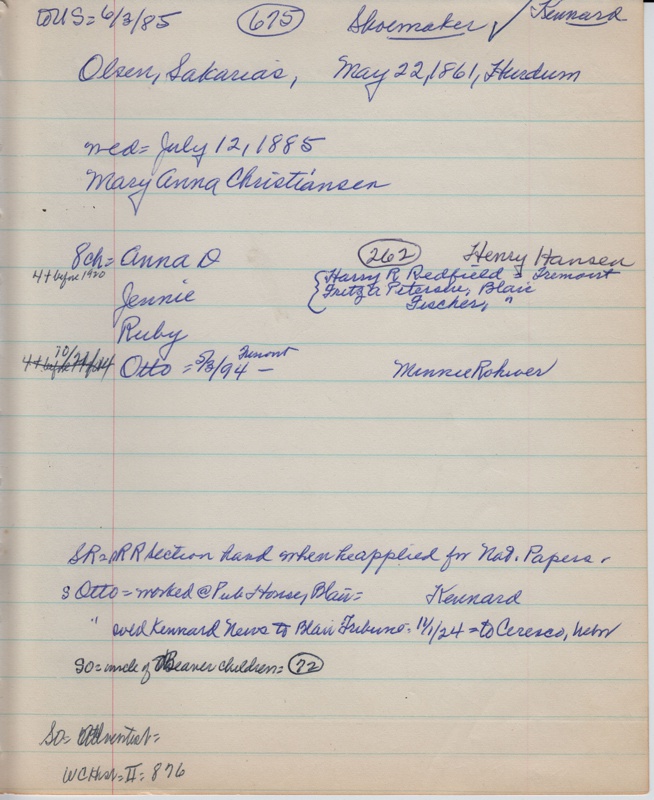 to US = 6/3/85 675 Shoemaker ✓ Kennard
Olsen, Sakarias, May 22, 1861, Hurdum
med = July 12, 1885
Mary Anna Christiansen
8 ch = Anna D 262 Henry Hansen
4 + before 1920 Harry R Redfield = Fremont
Jennie Fritz A Petersen, Blair
Fischer, "
Ruby
Otto = 5/3/94 Fremont — Minnie Rohwer
SR = RR Section hand when he applied for Nat. Papers.
s Otto = worked @ Pub House, Blair = Kennard
" sold Kennard News to Blair Tribune = 11/1/24 = to Ceresco, Nebr
SO = uncle of Beaver children = 72
SO = Adventist =
WC Hist = II = 876